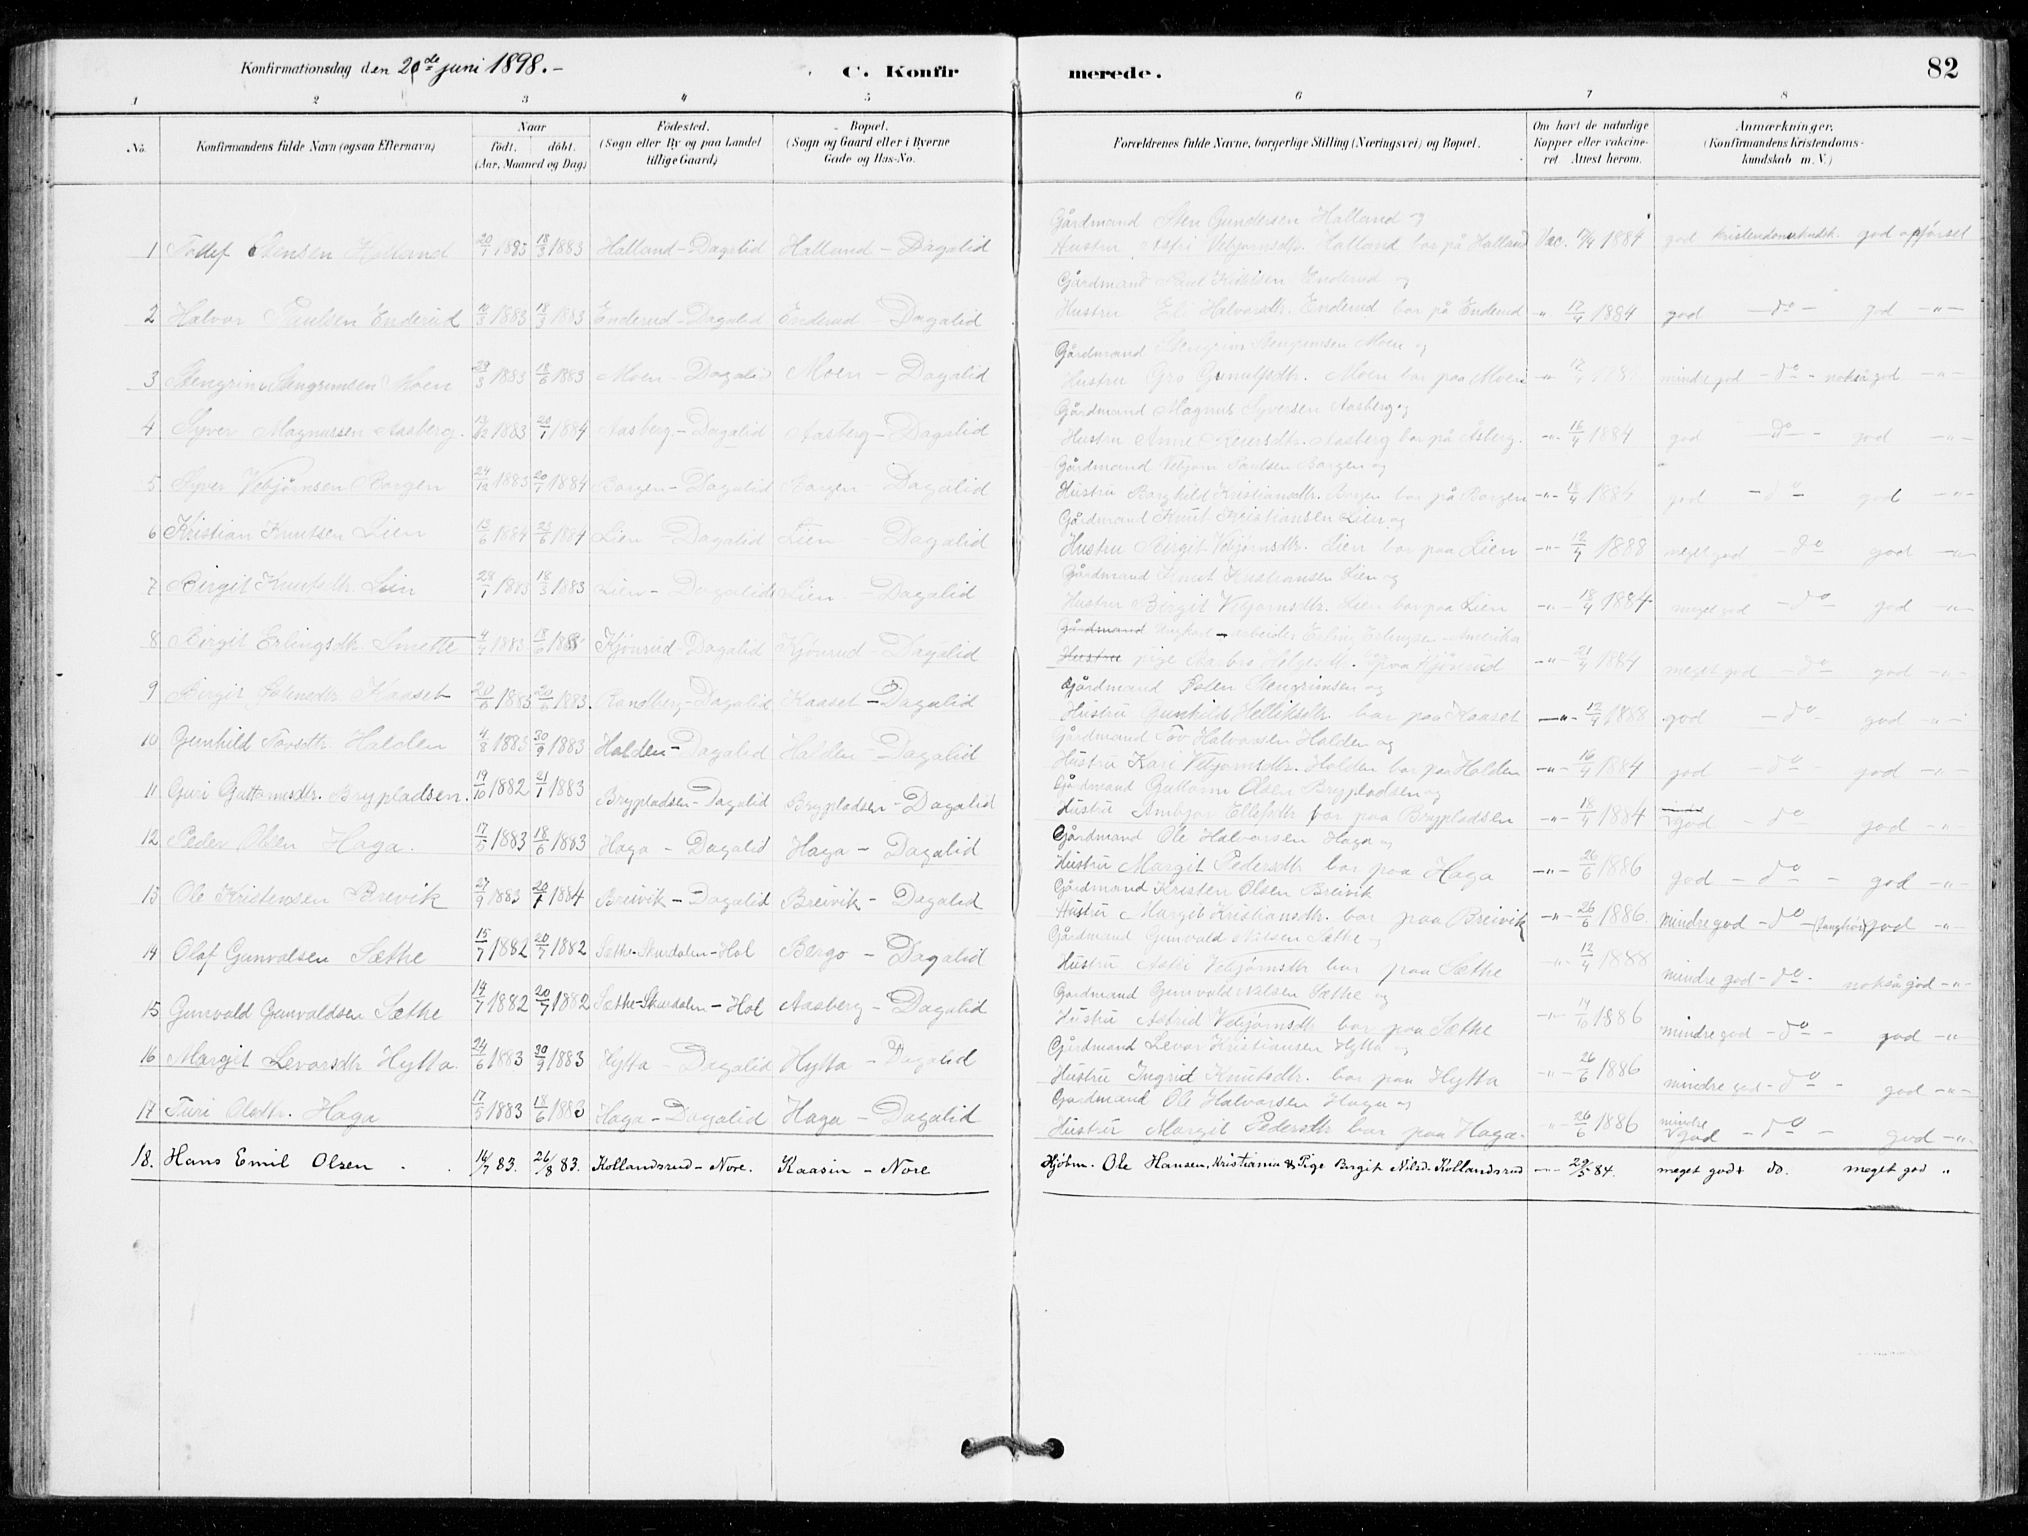 Konfirmationsdag den 20de juni 1898.-
C. Konfirmerede.
82
1 2 3 4 5 6 7 8
No.
Konfirmandens fulde Navn (ogsaa Efternavn)
Naar
født. døbt.
(Aar, Maaned og Dag)
Fødested.
(Sogn eller By og paa Landet
tillige Gaard)
Bopæl.
(Sogn og Gaard eller i Byerne
Gade og Hus-No.
Forældrenes fulde Navne, borgerlige Stilling (Næringsvei) og Bopæl.
Om havt de naturlige
Kopper eller vakcineret. Attest herom.
Anmærkninger.
(Konfirmandens Kristendomskundskab m. V.)
Gårdmand Sten Gundersen Halland og
1 Stensen Halland 20/1 1883 18/3 1883 Halland - Dagalid Halland - Dagalid Hustru Astri Vebjørnsdtr. Halland bor på Halland Vac. 1884 god kristendomskundsk. god opførsel
Gårdmand Paul Enderud og
2 Halvor Paulsen Enderud 1883 18/3 1883 Enderud - Dagalid Enderud - Dagalid Hustru Eli Halvorsdtr. Enderud bor på Enderud -"- 17/4 1884 god - do - god -"-
Gårdmand Stengrim Stengrimsen Moen og
3 Stengrim Stengrimsen Moen 29/3 1883 18/6 1883 Moen - Dagalid Moen - Dagalid Hustru Gro Moen bor paa Moen -"- mindre god - do - nokså god -"-
Gårdmand Magnus Syversen Aasberg og
4 Syver Magnussen Aasberg. 1883 20/1 1884 Aasberg - Dagalid Aasberg - Dagalid Hustru Anne Aasberg bor på Åsberg. -"- 16/4 1884 god - do - god -"-
Gårdmand Vebjørn Paulsen Borgen og
5 Syver Vebjørnsen Borgen 24/12 1883 20/1 1884 Borgen - Dagalid Borgen Dagalid Hustru Borghild Kristiansdtr. Borgen bor på Borgen -"- 18/4 1884 god - do - god -"-
Gårdmand Knut Kristiansen Lien og
6 Kristian Knutsen Lien 1884 1884 Lien - Dagalid Lien - Dagalid Hustru Birgit Vebjørnsdtr. Lien bor paa Lien -"- 12/4 1888 meget god - do god -"-
Gårdmand Knut Kristiansen Lien og
7 Birgit Knutsdtr. Lien 28/1 1883 18/3 1883 Lien - Dagalid Lien - Dagalid Hustru Birgit Vebjørnsdtr. Lien bor paa Lien -"- 18/4 1884 meget god - do - god -"-
Gårdmand Ungkarl arbeider Erling Erlingsen - Amerika
8 Birgit Erlingsdtr. 1883 18/6 Kjønrud - Dagalid Kjønrud - Dagalid Hustru pige Aasbro Helgesdtr. paa Kjønrud -"- 21/4 1884 meget god - do - god -"-
Gårdmand Stengrimsen og
9 Birgit Kaaset 1883 1883. Dagalid Kaaset - Dagalid Hustru Gunhild Helliksdtr. bor paa Kaaset -"- 12/4 1888 god - do god -"-
Gårdmand Tov Halvorsen Halden og
10 Gunhild Tovsdtr. Halden 4/8 1883 30/9 1883 Halden - Dagalid Halden - Dagalid Hustru Kari Vebjørnsdtr. Halden bor paa Halden -"- 16/4 1884 god - do god -"-
Gårdmand Guttorm Olsen Brypladsen og
11 Guri Guttormsdtr. Brypladsen. 19/10 1882 21/1 1883 Brypladsen - Dagalid Brypladsen - Dagalid Hustru Ambjør Ellefsdtr bor paa Brypladsen -"- 18/4 1884 god - do god -"-
Gårdmand Ole Halvorsen Haga og
12 Peder Olsen Haga. 17/5 1883 18/6 1883 Haga - Dagalid Haga - Dagalid Hustru Margit Pedersdtr bor paa Haga -"- 26/6 1886 god - do - god -"-
Gårdmand Kristen Olsen Breivik
13 Ole Kristensen Breivik 27/9 1883 20/1 1884 Breivik - Dagalid Breivik - Dagalid Hustru Margit Kristiansdtr. bor paa Breivik -"- 26/6 1886. mindre god - do (tunghør) god -"-
Gårdmand Gunvald Nilsen Sæthe og
14 Olaf Gunvalsen Sæthe 15/7 1882 20/7 1882 Sæthe - Skurdalen - Hol Bergo - Dagalid Hustru Astri Vebjørnsdtr bor paa Sæthe -"- 12/4 1888 mindre god - do - nokså god -"-
Gårdmand Gunvald Nilsen Sæthe og
15 Gunvald Gunvaldsen Sæthe 14/7 1882 20/7 1882 Sæthe - Skurdalen - Hol Aasberg - Dagalid Hustru Astrid Vebjørnsdtr bor paa Sæthe -"- 1886 mindre god - do - god -"-
Gårdmand Levor Kristiansen Hytta og
16 Margit Levorsdtr Hytta. 24/6 1883 30/9 1883 Hytta - Dagalid Hytta - Dagalid Hustru Ingrid Knutsdtr. bor paa Hytta -"- 26/6 1886 mindre god - do - god -"-
Gårdmand Ole Halvorsen Haga og
17 Turi Olsdtr. Haga 17/5 1883 18/6 1883 Haga - Dagalid Haga - Dagalid Hustru Margit Pedersdtr bor paa Haga. -"- 26/6 1886 mindre god - do - god -"-
18. Hans Emil Olsen 14/7 83. 26/8 83. Kollandsrud - Nore. Kaasin - Nore Hjbm. Ole Hansen, Kristiania & Pige Birgit Nilsd. Kollandsrud -"- 29/5 84. meget godt do. meget god "